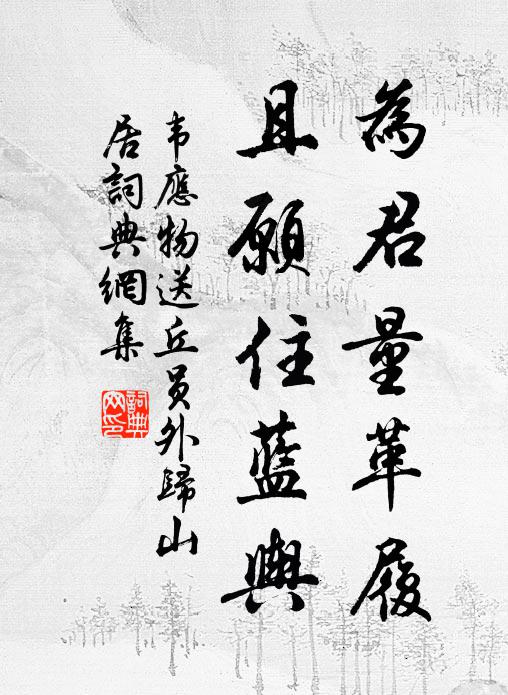 為君量革履
且願住藍輿
韦應物送丘员外歸山
居詞典網集
詞典
网印